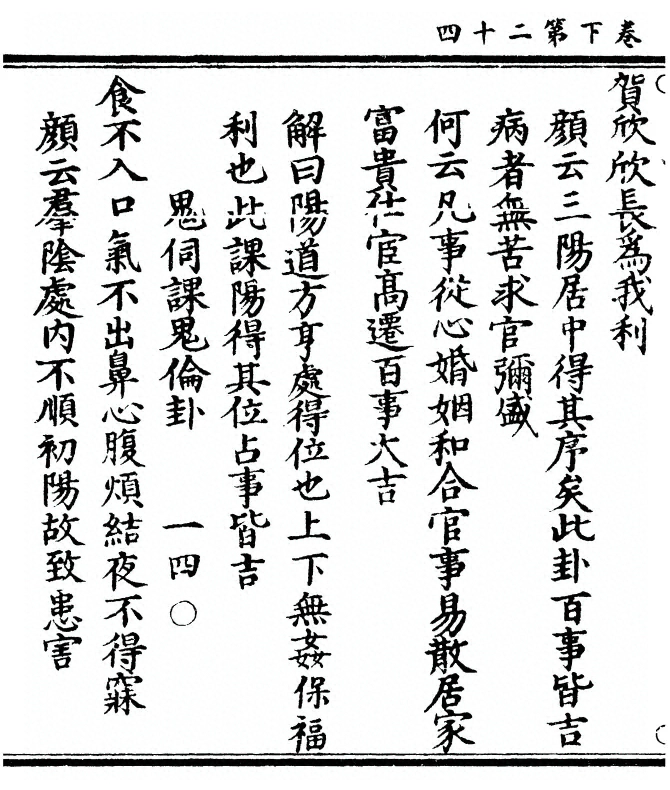 卷下第二十四
賀欣欣長為我利
顏云三陽居中得其序矣此卦百事皆吉
病者無苦求官彌盛
何云凡事從心婚姻和合官事易散居家
富貴仕宦高遷百事大吉
解曰陽道方亨處得位也上下無姦保福
利也此課陽得其位占事皆吉
鬼伺課鬼倫卦 一四〇
食不入口氣不出鼻心腹煩結夜不得寐
顏云羣陰處內不順初陽故致患害